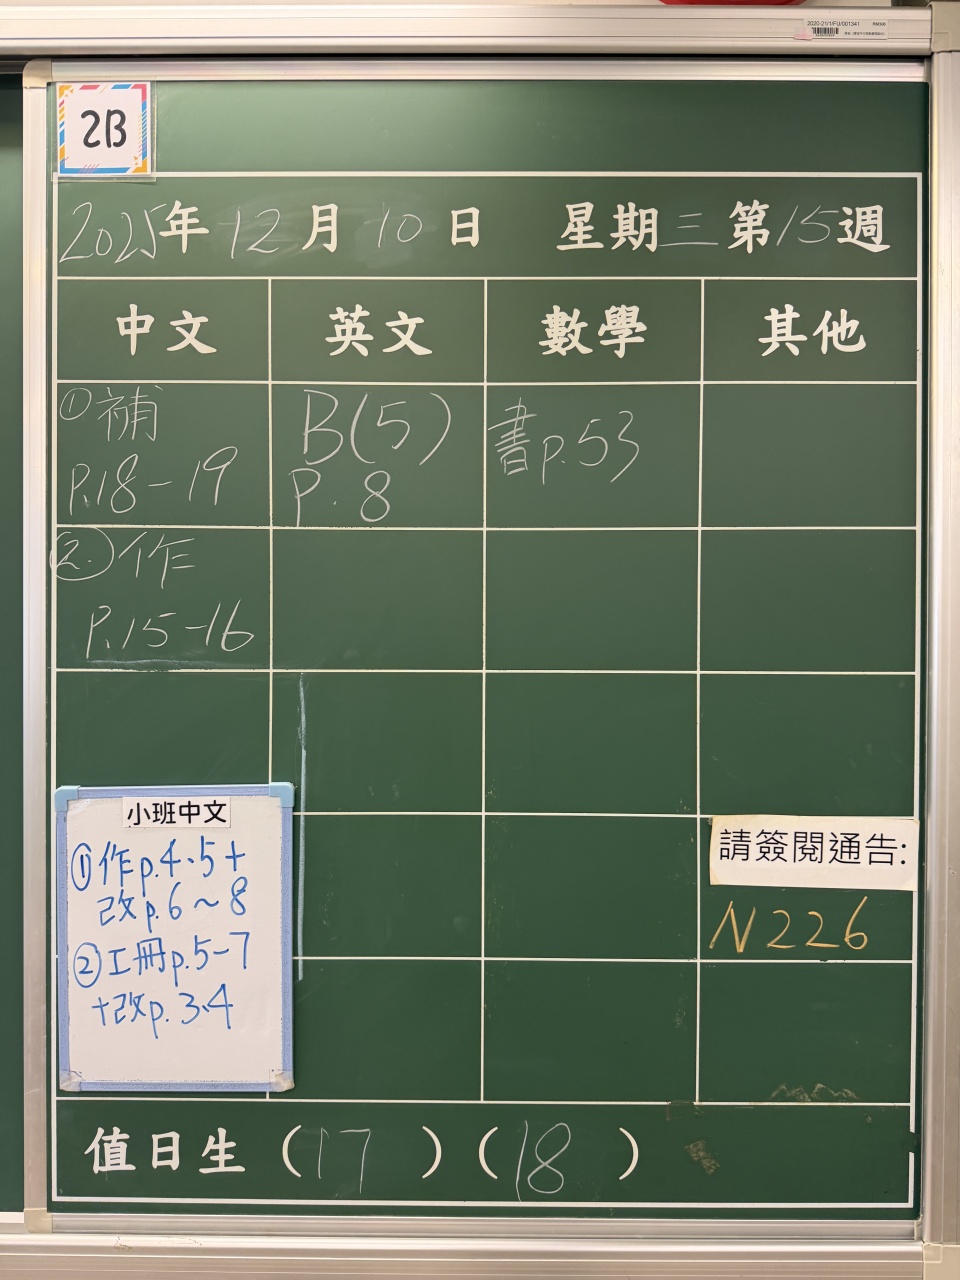 2020-21/1/FU/001341
RM306
2B
2025年12月10日 星期三 第15週
中文 英文 數學 其他
①補
P.18-19
B(5)
P.8
書p.53
②作
P.15-16
小班中文
①作p.4、5+
改p.6~8
②工冊p.5-7
+改p.3、4
請簽閱通告:
N226
值日生（17）（18）